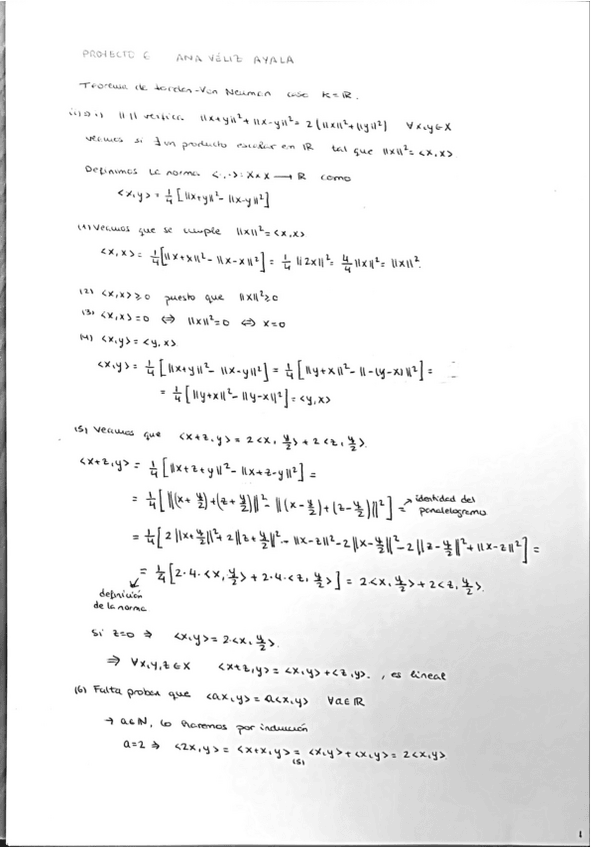 PROYECTO 6 ANA VÉLIZ AYALA
Teorema de Jordan-Von Neuman caso K=ℝ.
ii)⇒i) || || verifica ||x+y||²+||x-y||²=2(||x||²+||y||²) ∀x,y∈X
veamos si ∃ un producto escalar en ℝ tal que ||x||²=<x,x>.
Definimos la norma <·,·>: X×X → ℝ como
<x,y> = 1/4 [||x+y||²-||x-y||²]
(1) Veamos que se cumple ||x||²=<x,x>
<x,x> = 1/4 [||x+x||²-||x-x||²] = 1/4 ||2x||² = 4/4 ||x||² = ||x||².
(2) <x,x> ≥ 0 puesto que ||x||² ≥ 0
(3) <x,x> = 0 ⇔ ||x||² = 0 ⇔ x=0
(4) <x,y> = <y,x>
<x,y> = 1/4 [||x+y||²-||x-y||²] = 1/4 [||y+x||²-||-(y-x)||²] =
= 1/4 [||y+x||²-||y-x||²] = <y,x>
(5) Veamos que <x+z,y> = 2<x, y/2> + 2<z, y/2>.
<x+z,y> = 1/4 [||x+z+y||²-||x+z-y||²] =
= 1/4 [||(x+y/2)+(z+y/2)||²-||(x-y/2)+(z-y/2)||²] = → identidad del paralelogramo
= 1/4 [2||x+y/2||²+2||z+y/2||²-||x-z||²-2||x-y/2||²-2||z-y/2||²+||x-z||²] =
= 1/4 [2·4·<x, y/2> + 2·4·<z, y/2>] = 2<x, y/2> + 2<z, y/2>.
definición
de la norma
Si z=0 ⇒ <x,y> = 2·<x, y/2>.
⇒ ∀x,y,z∈X <x+z,y> = <x,y>+<z,y>. , es lineal
(6) Falta probar que <ax,y> = a<x,y> ∀a∈ℝ
→ a∈ℕ, lo haremos por inducción
a=2 ⇒ <2x,y> = <x+x,y> = <x,y>+<x,y> = 2<x,y>
(5)
1